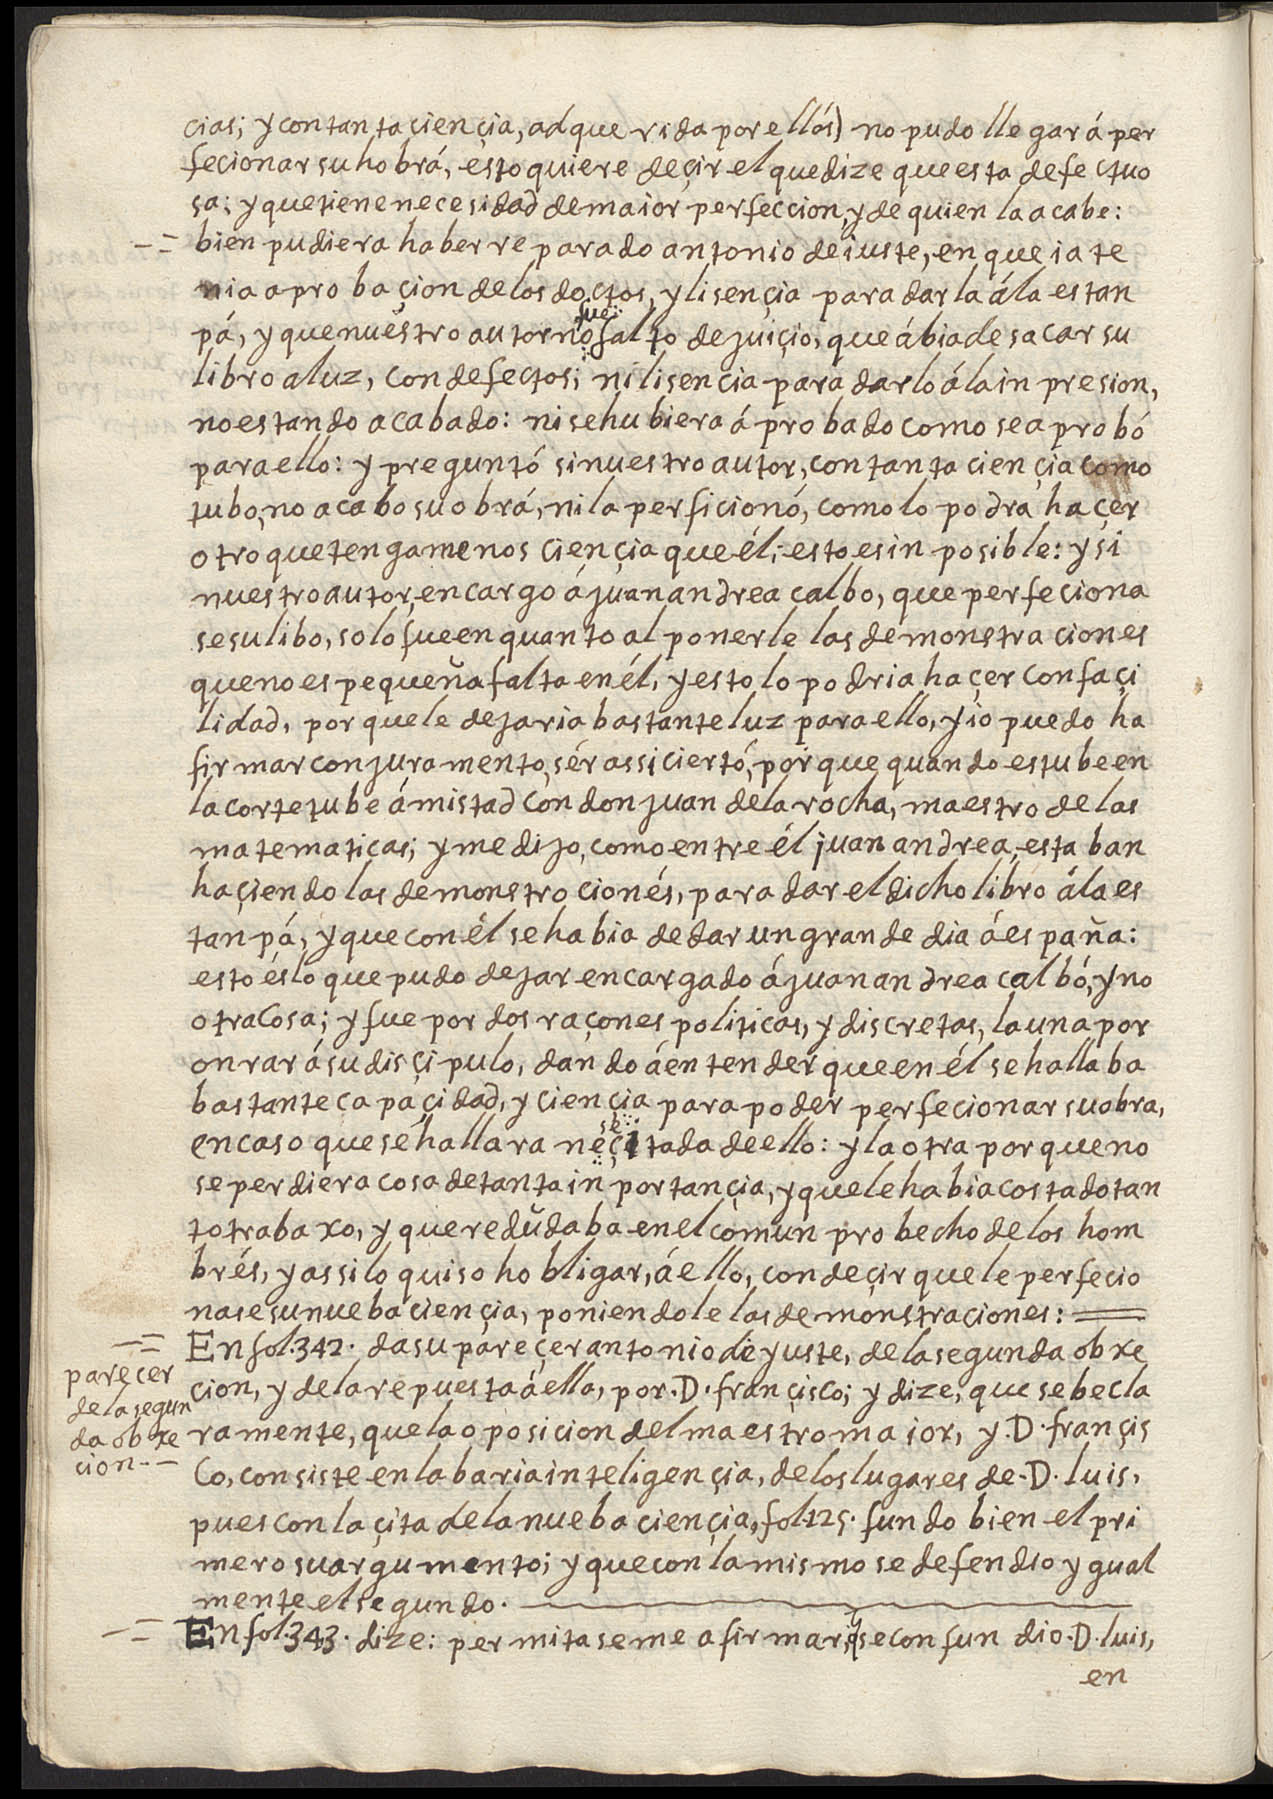 cias; y con tanta çiençia, adquerida por ellós) no pudo llegar á per
fecionar su hobrá, esto quiere deçir el que dize que esta defectuo
sa; y que tiene necesidad de maior perfeccion, y de quien la acabe:
-= bien pudiera haber reparado antonio de iuste, en que ia te
nia aprobaçion de los doctos, y lisençia para darla á la estan
pá, y que nuestro autor no fue falto de juiçio, que ábia de sacar su
libro a luz, con defectos; ni lisencia para darlo á la inpresion,
no estando acabado: ni se hubiera áprobado como se aprobó
para ello: y preguntó si nuestro autor, con tanta ciençia como
tubo, no acabo su obrá, ni la perficionó, como lo podra haçer
otro que tenga menos ciençia que él; esto es inposible: y si
nuestro autor encargo á juan andrea calbo, que perfeciona
se su libo, solo fue en quanto al ponerle las demonstraciones
que no es pequeña falta en él, y esto lo podria haçer con façi
lidad, porque le dejaria bastante luz para ello, y io puedo ha
firmar con juramento, sér assi ciertó, porque quando estube en
la corte tube ámistad con don juan de la rocha, maestro de las
matematicas; y me dijo, como entre él juan andrea, estaban
haçiendo las demonstrocionés, para dar el dicho libro á la es
tanpá, y que con él se habia de dar un grande dia á españa:
esto és lo que pudo dejar encargado á juan andrea calbó, y no
otra cosa; y fue por dos raçones politicas, y discretas, la una por
onrar á su disçipulo, dando á entender que en él se hallaba
bastante capaçidad, y ciençia para poder perfecionar su obra,
en caso que se hallara neçesitada de ello: y la otra porque no
se perdiera cosa de tanta inportançia, y que le habia costado tan
to trabaxo, y que redŭdaba en el comun probecho de los hom
brés, y assi lo quiso hobligar, á ello, con deçir que le perfecio
nase su nueba ciençia, poniendole las demonstraciones:
-= En fol. 342. da su pareçer antonio de yuste, de la segunda obxe
parecer
de la segun
da obxe
cion.-
cion, y de la repuesta á ella, por .D. françisco; y dize, que se be cla
ramente, que la oposicion del maestro maior, y .D. françis
co, consiste en la baria inteligençia, de los lugares de .D. luis,
pues con la çita de la nueba ciençia, fol. 125. fundo bien el pri
mero su argumento; y que con la mismo se defendio ygual
mente el segundo.
-= En fol. 343. dize: permitaseme afirmar, q se confundio .D. luis,
en